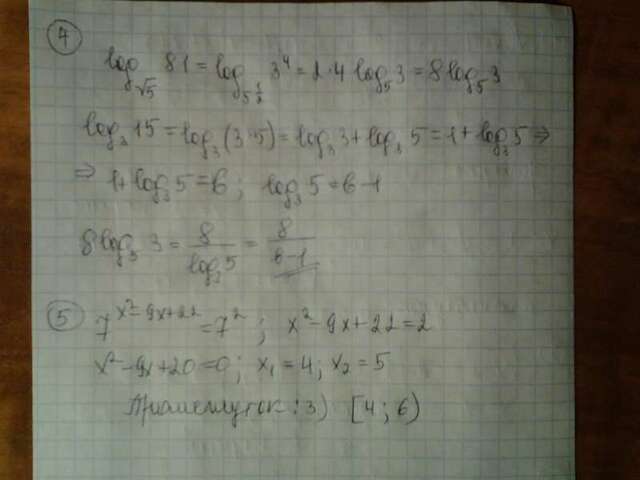 4
log_{√5} 81 = log_{5^{1/2}} 3^4 = 2·4 log_5 3 = 8 log_5 3
log_3 15 = log_3 (3·5) = log_3 3 + log_3 5 = 1 + log_3 5 ⇒
⇒ 1 + log_3 5 = b; log_3 5 = b - 1
8 log_5 3 = 8/log_3 5 = 8/(b-1)
5
7^{x^2-9x+22} = 7^2; x^2 - 9x + 22 = 2
x^2 - 9x + 20 = 0; x_1 = 4; x_2 = 5
Промежуток: 3) [4; 6)